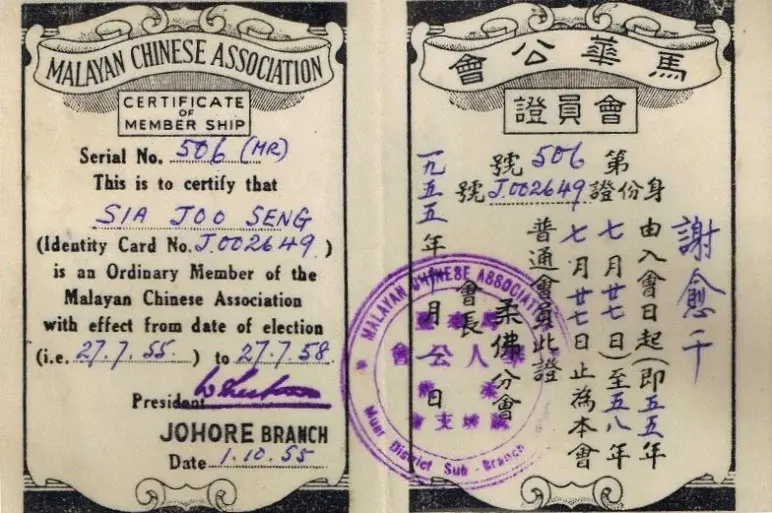 MALAYAN CHINESE ASSOCIATION
CERTIFICATE
OF
MEMBER SHIP
Serial No. 506 (MR)
This is to certify that
SIA JOO SENG
(Identity Card No. J.002649)
is an Ordinary Member of the
Malayan Chinese Association
with effect from date of election
(i.e. 27.7.55.) to 27.7.58.
President
JOHORE BRANCH
Date 1.10.55
馬華公會
會員證
第506號
身份證J.002649號
謝愈
由入會日起(即五五年
七月廿七日)至五八年
七月廿七日止為本會
普通會員此證
柔佛分會
會長
一九五五年 月 日
MALAYAN CHINESE ASSOCIATION
華人公會
支會
Muar District Sub-Branch